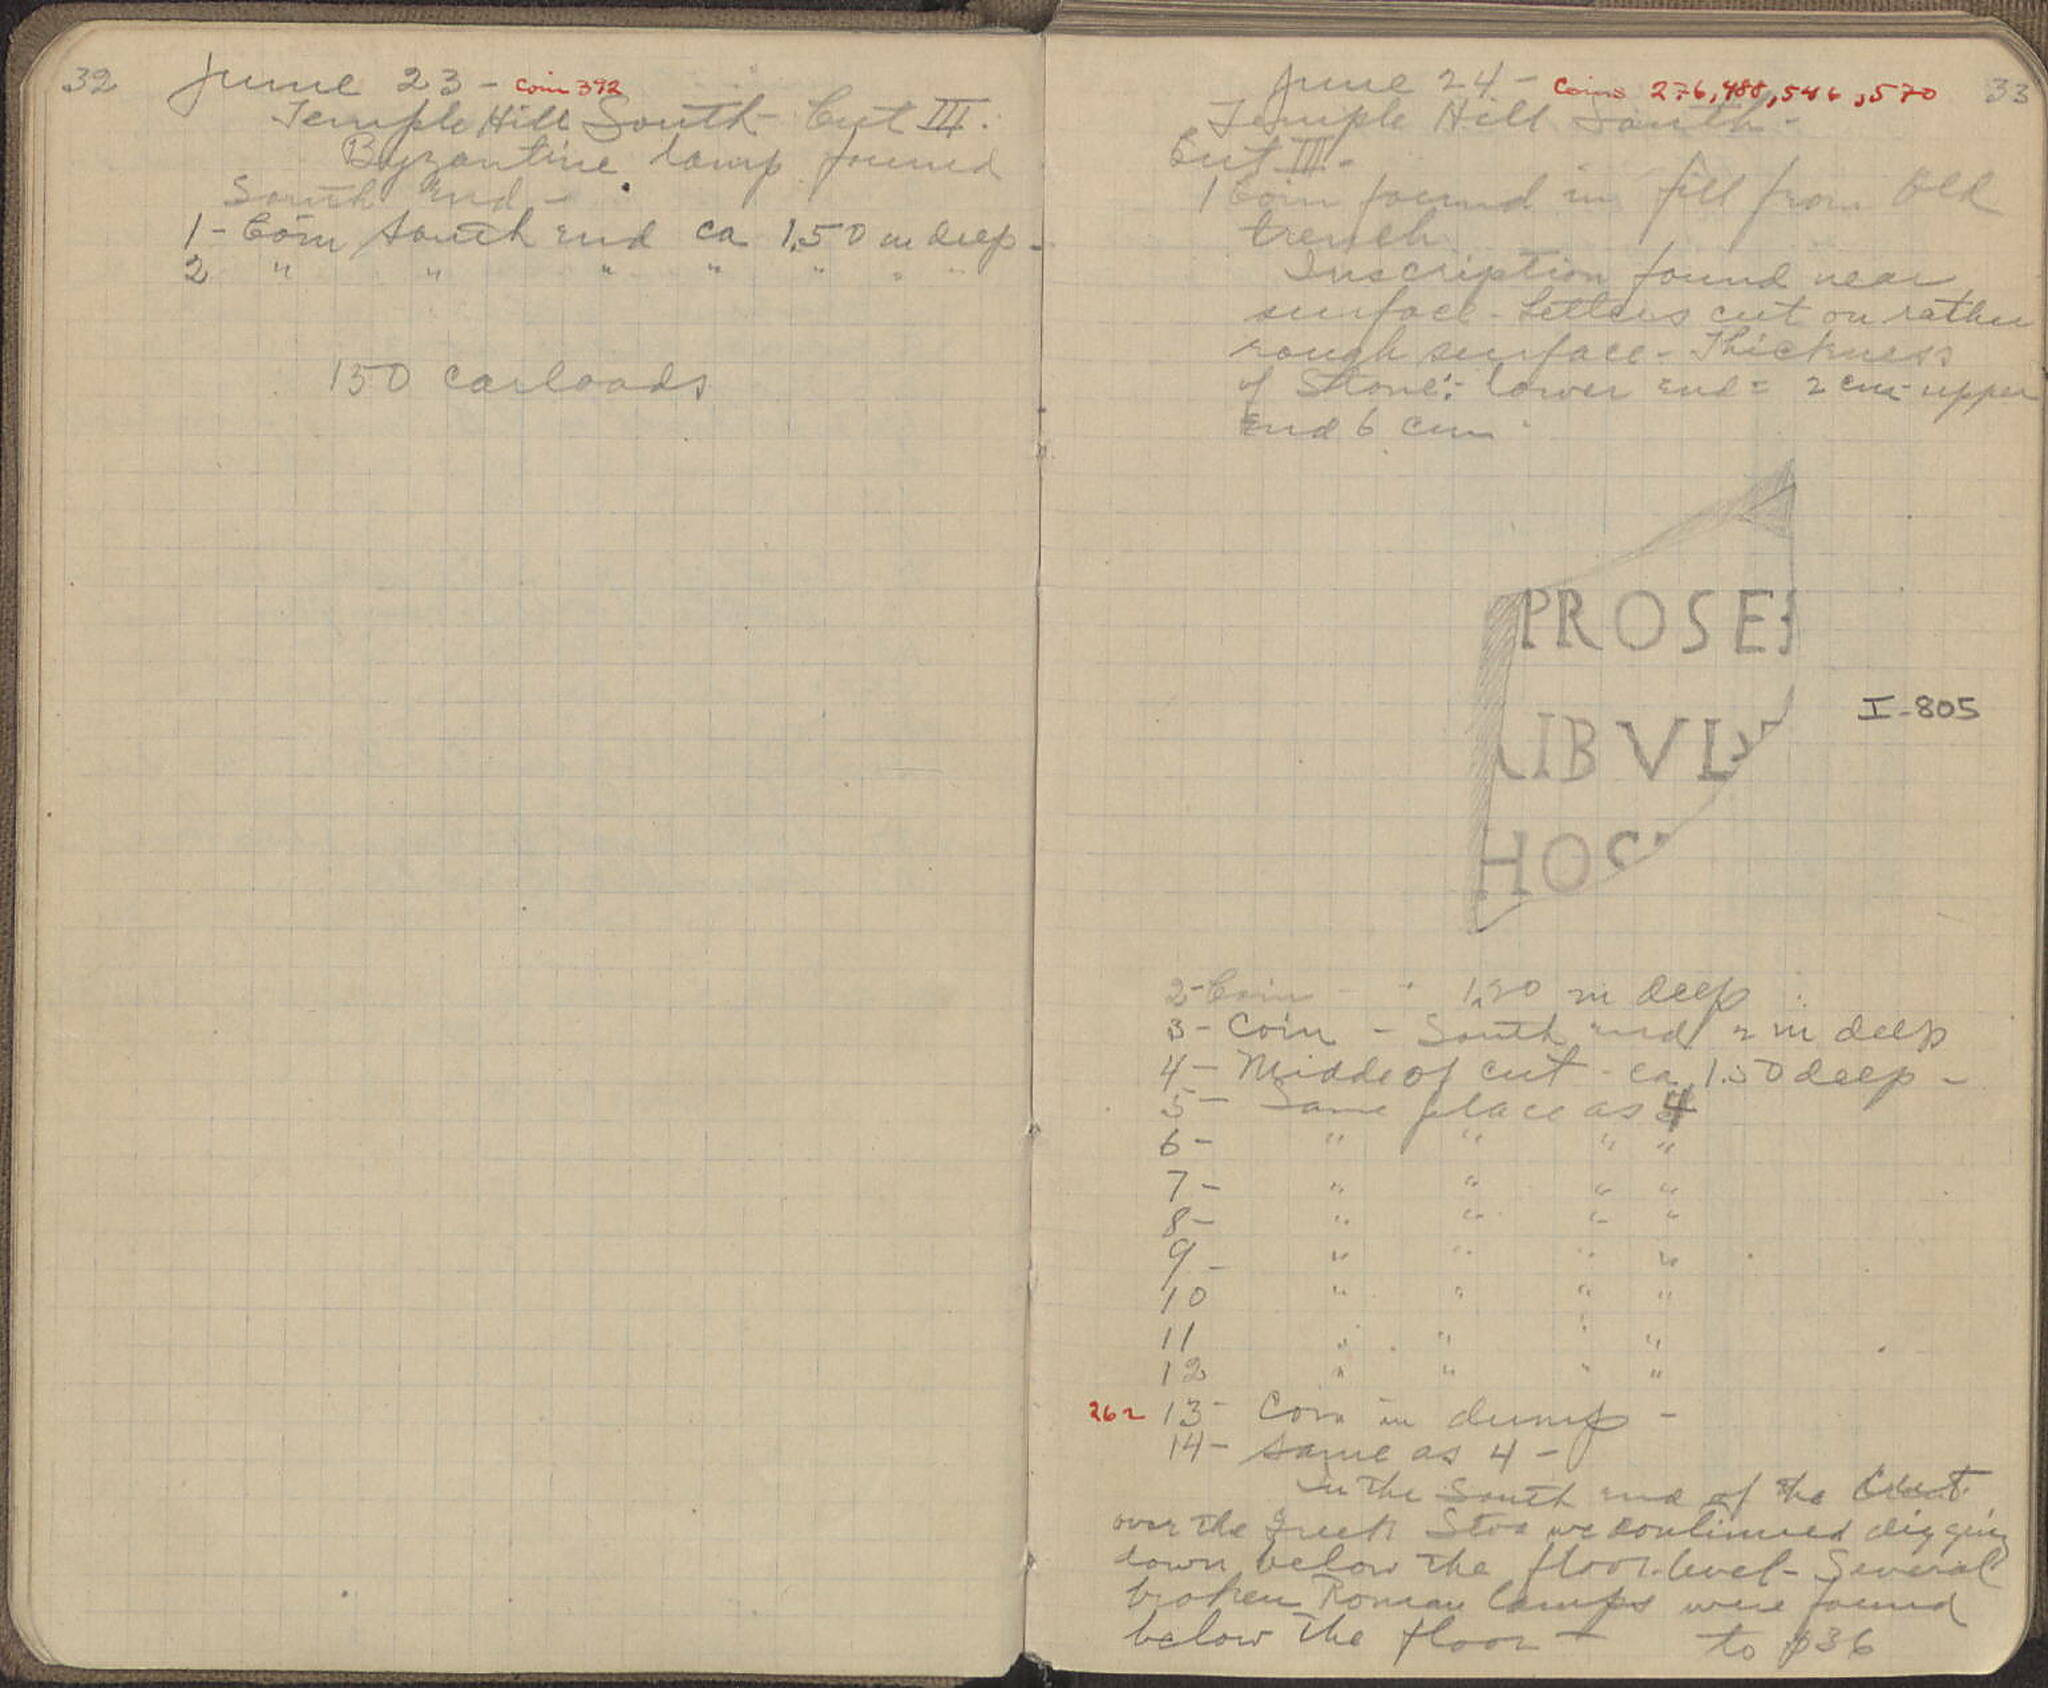 32 June 23 - Coin 392
Temple Hill South - Cut III.
Byzantine lamp found
South End -
1 - Coin South end ca 1.50 m deep -
2 " " " " " " "
150 carloads
June 24 - Coins 276, 488, 546, 570 33
Temple Hill South -
Cut III -
1 Coin found in fill from Old
trench
Inscription found near
surface - Letters cut on rather
rough surface - Thickness
of Stone: - lower end = 2 cm - upper
End 6 cm
PROSE
I-805
IBVL
HOS
2 - Coin - " 1.20 m deep
3 - Coin - South end 2 m deep
4 - Midde of cut - ca 1.50 deep -
5 - Same place as 4
6 - " " " "
7 - " " " "
8 - " " " "
9 - " " " "
10 " " " "
11 " " " "
12 " " " "
262 13 - Coin in dump -
14 - same as 4 -
In the South end of the Cut
over the Greek Stoa we continued digging
down below the floor-level - Several
broken Roman lamps were found
below the floor - to p36